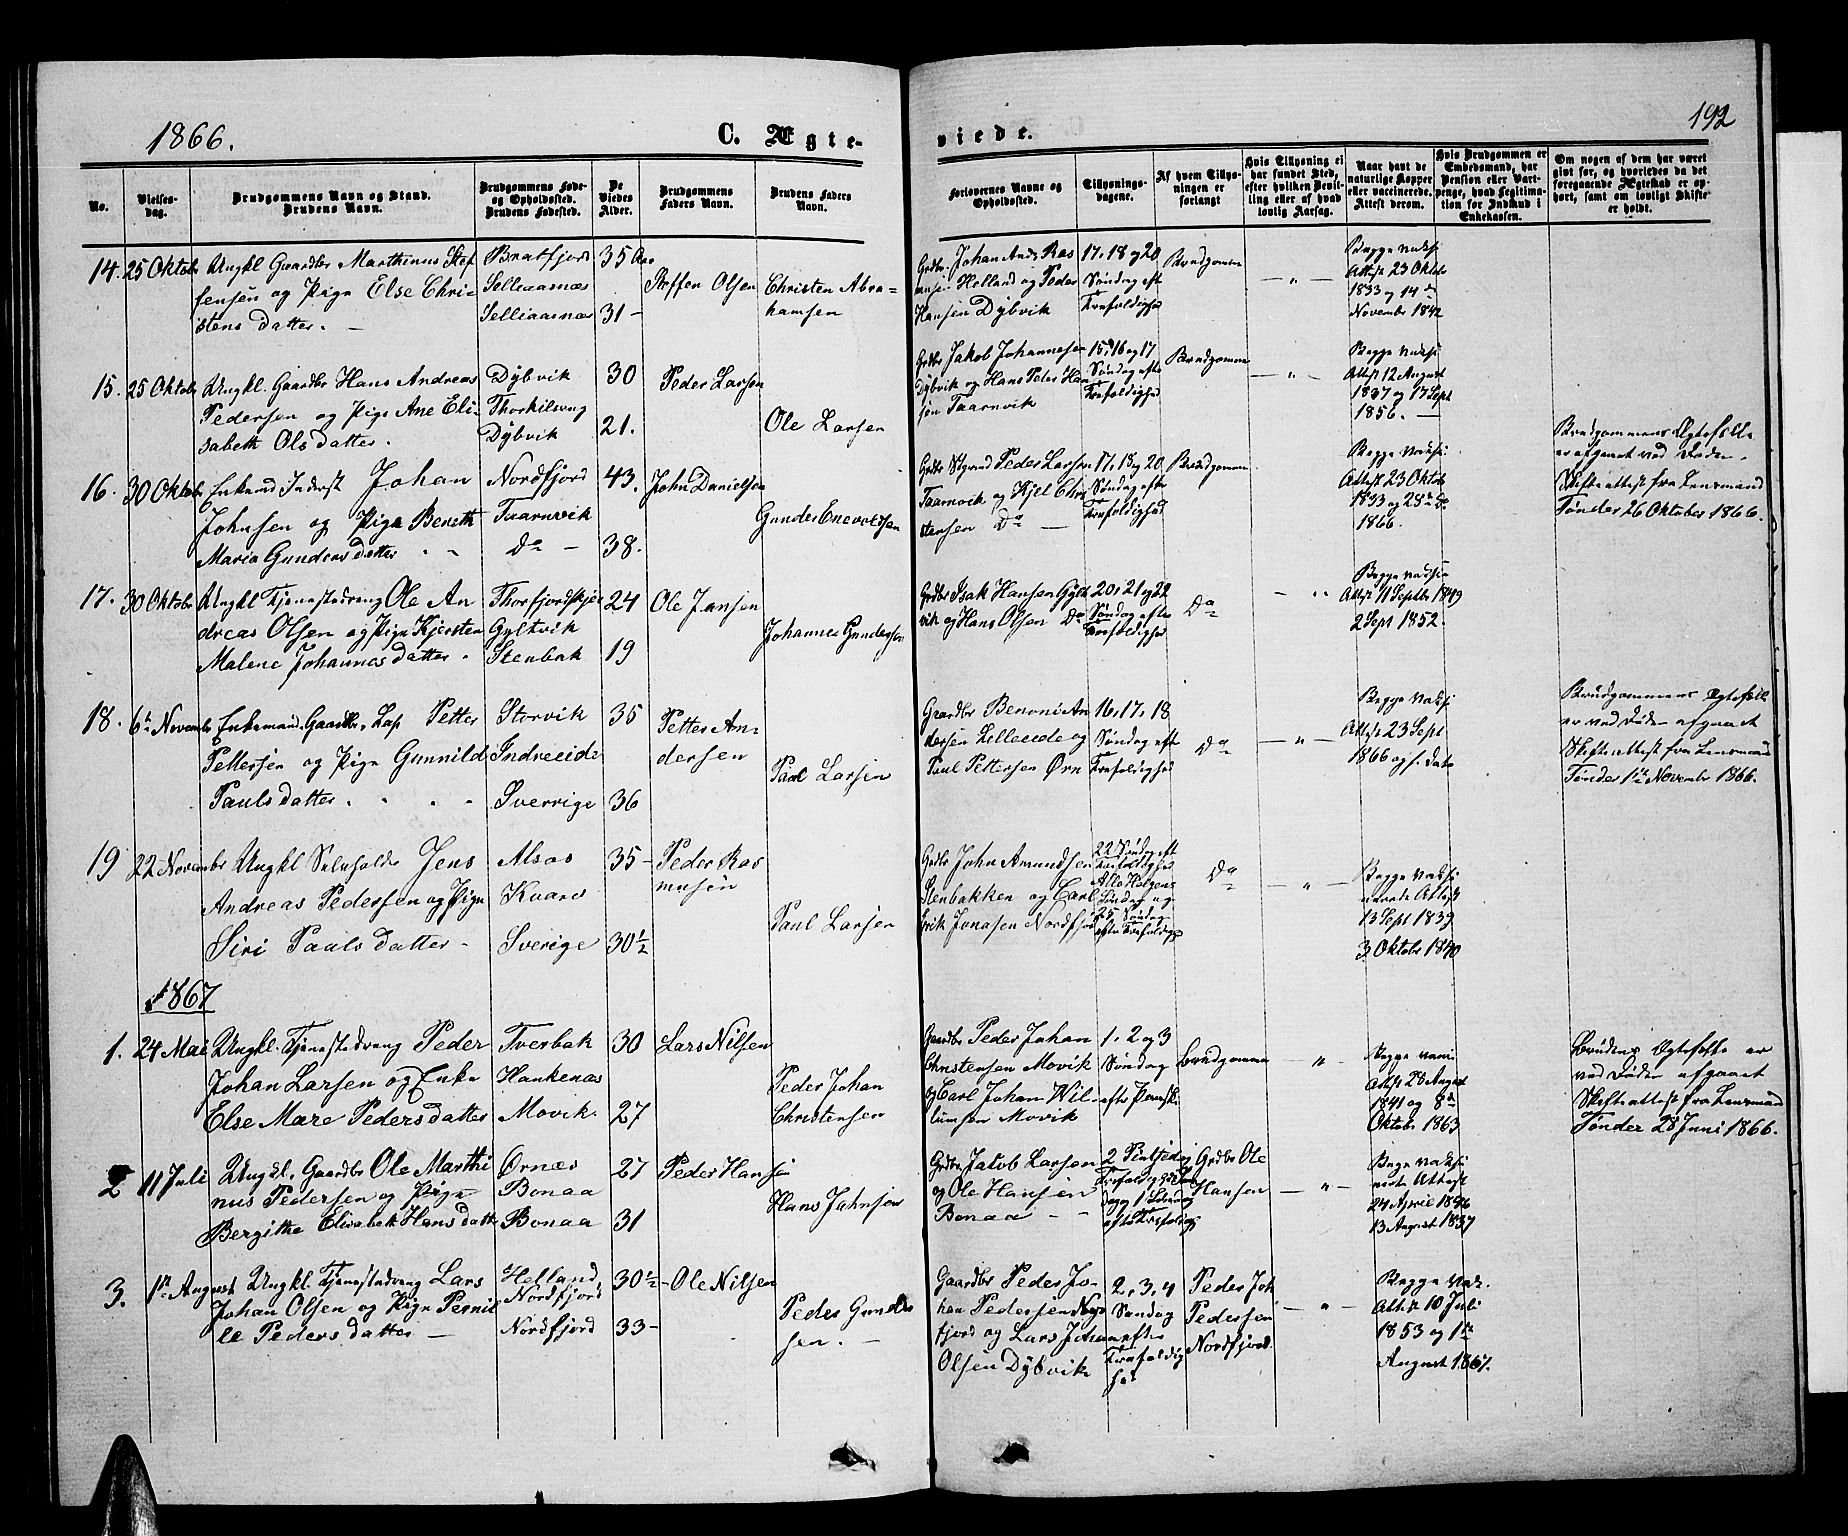 1866.
C. Ægte-
viede.
192
No.
Vielses-
dag.
Brudgommens Navn og Stand.
Brudens Navn.
Brudgommens Føde-
og Opholdssted.
Brudens Fødested.
De
Viedes
Alder.
Brudgommens
Faders Navn.
Brudens Faders
Navn.
Forlovernes Navne og
Opholdssted.
Tillysnings-
dagene.
Af hvem Tillys-
ningen er
forlangt
Hvis Tillysning ei
har fundet Sted,
efter hvilken Bevil-
ling eller af hvad
lovlig Aarsag.
Naar havt de
naturlige Kopper
eller vaccinerede.
Attest derom.
Hvis Brudgommen er
Embedsmand, har
Pension eller Vart-
penge, hvad Legitima-
tion for Indskud i
Enkekassen.
Om nogen af dem har været
givt før, og hvorledes da det
foregaaende Ægteskab er op-
hørt, samt om lovligt Skifte
er holdt.
14. 25 Oktob
Ungkl Gaardbr Marthinus Stef
fensen og Pige Else Chri-
stens datter. -
Bratfjord
Selliaasnæs
Selliaasnæs
35 Aar
31 -
Steffen Olsen
Christen Abra-
hamsen
Grdbr Johan Ands Ras
Helland og Peder
Hansen Dybvik
17, 18 og 20
Søndag eft
Trefoldighed
Brudgommen
- " -
Begge vaksi
Attest 23 Oktob
1833 og 14de
November 1842
15. 25 Oktob
Ungkl. Gaardbr Hans Andreas
Pedersen og Pige Ane Eli-
sabeth Ols datter.
Dybvik
Thorkilseng
Dybvik
30
21.
Peder Larsen
Ole Larsen
Grdbr Jakob Johannesen
Dybvik og Hans Peder Han
sen Taarnvik
15, 16 og 17
Søndag efter
Trefoldighed
Brudgommen
- " -
Begge vaksi
Attest 12 August
1837 og 17 Sept
1856. -
16. 30 Oktob
Enkemd Inderst Johan
Johnsen og Pige Bereth
Maria Gunders datter
Nordfjord
Taarnvik
Do -
43.
38.
John Danielsen
Gunder Enevoldsen
Peder Larsen
Taarnvik og Kjel Chri
stensen Do -
17, 18 og 20
Søndag efter
Trefoldighed
Brudgommen
Begge vaksi
Attest 23 Oktob
1833 og 28de
1866.
Brudgommens Ægtefelle
er afgaaet ved Døden.
Skifteattest fra Lensmand
Tønder 26 Oktober 1866.
17. 30 Oktob
Ungkl Tjenestedreng Ole An
dreas Olsen og Pige Kjersten
Malene Johannes datter.
Thorfjordskjer
Gyltvik
Stenbak
24
19
Ole Jansen
Johannes Gundersen
Grdbr Isak Hansen Gylt
vik og Hans Olsen Do
20, 21 og 22
Søndag efter
Trefoldighed
Do
- "
Begge vaksi
Attest 11 Septbr 1849
2 Sept 1852.
18. 6te November
Enkemand. Gaardbr. Lap Petter
Pettersen og Pige Gunnild
Pauls datter.
Storvik
Indreeide
Sverrige
35
36
Petter An-
dersen
Paul Larsen
Gaardbr Benoni An
dersen Lilleeide og
Paul Pettersen Ørn
16, 17, 18
Søndag eft
Trefoldighed
Do
- " -
Begge vaksi
Attest 23 Sept
1866 og s. Dato
Brudgommens Ægtefell
er ved Døden afgaaet
Skifteattest fra Lensmand
Tønder 1ste November 1866.
19 22 November
Ungkl Selveholder Jens
Andreas Pedersen og Pige
Siri Pauls datter -
Alsos
Kvarv
Sverige
35 -
30 1/2
Peder Ras
musen
Paul Larsen
Grdbr John Amundsen
Stenbakken og Carl
Jonasen Nordfjord
22 Søndag eft
Trefoldighed
Alle Helgens
Søndag og
25 Søndag
efter Trefoldigh
Do
- " -
Begge vaksi
nerede Attest
13 Sept 1839
3 Oktober 1840
1867
1. 24 Mai
Ungkl. Tjenestedreng Peder
Johan Larsen og Enke
Else Mare Peders datter
Tverbak
Hankenæs
Movik.
30
27
Lars Nilsen
Peder Johan
Christensen
Gaardbr Peder Johan
Christensen Movik
og Carl Johan Wil-
lumsen Movik
1. 2 og 3
Søndag
efter Paaske
Brudgommen
- " -
Begge vaxi
Attest 28 August
1841 og 8de
Oktober 1863
Brudens Ægtefelle er
ved Døden afgaaet
Skifteattest fra Lensmand
Tønder 28 Juni 1866.
2 11 Juli
Ungkl. Gaardbr Ole Marthi
nus Pedersen og Pige
Bergithe Elisabeth Hans datter
Ørnæs
Bonaa
Bonaa
27
31
Peder Hansen
Hans Jahnsen
Grdbr Jakob Larsen
og Ole Hansen
Bonaa - -
2 Pintsedag
Trefoldigheds
dag og 1 Søndag
efter Trefoldigh
Grdbr Ole
Hansen
- " -
Begge vaksi
nerte Attest
24 April 1846
13 August 1837
3. 1ste August
Ungkl. Tjenestedreng Lars
Johan Olsen og Pige Pernil
le Peders datter -
Helland,
Nordfjord
Nordfjord
30 1/2 -
33 -
Ole Nilsen
Peder Gunder
sen. -
Gaardbr Peder Jo-
han Pedersen Nord
fjord og Lars Johan
Olsen Dybvik
2, 3, 4
Søndag
efter
Trefoldig
hed
Peder Joh
Pedersen
Nordfjord.
- " -
Begge vak.
Attest 10 Juli
1853 og 1ste
August 1867.